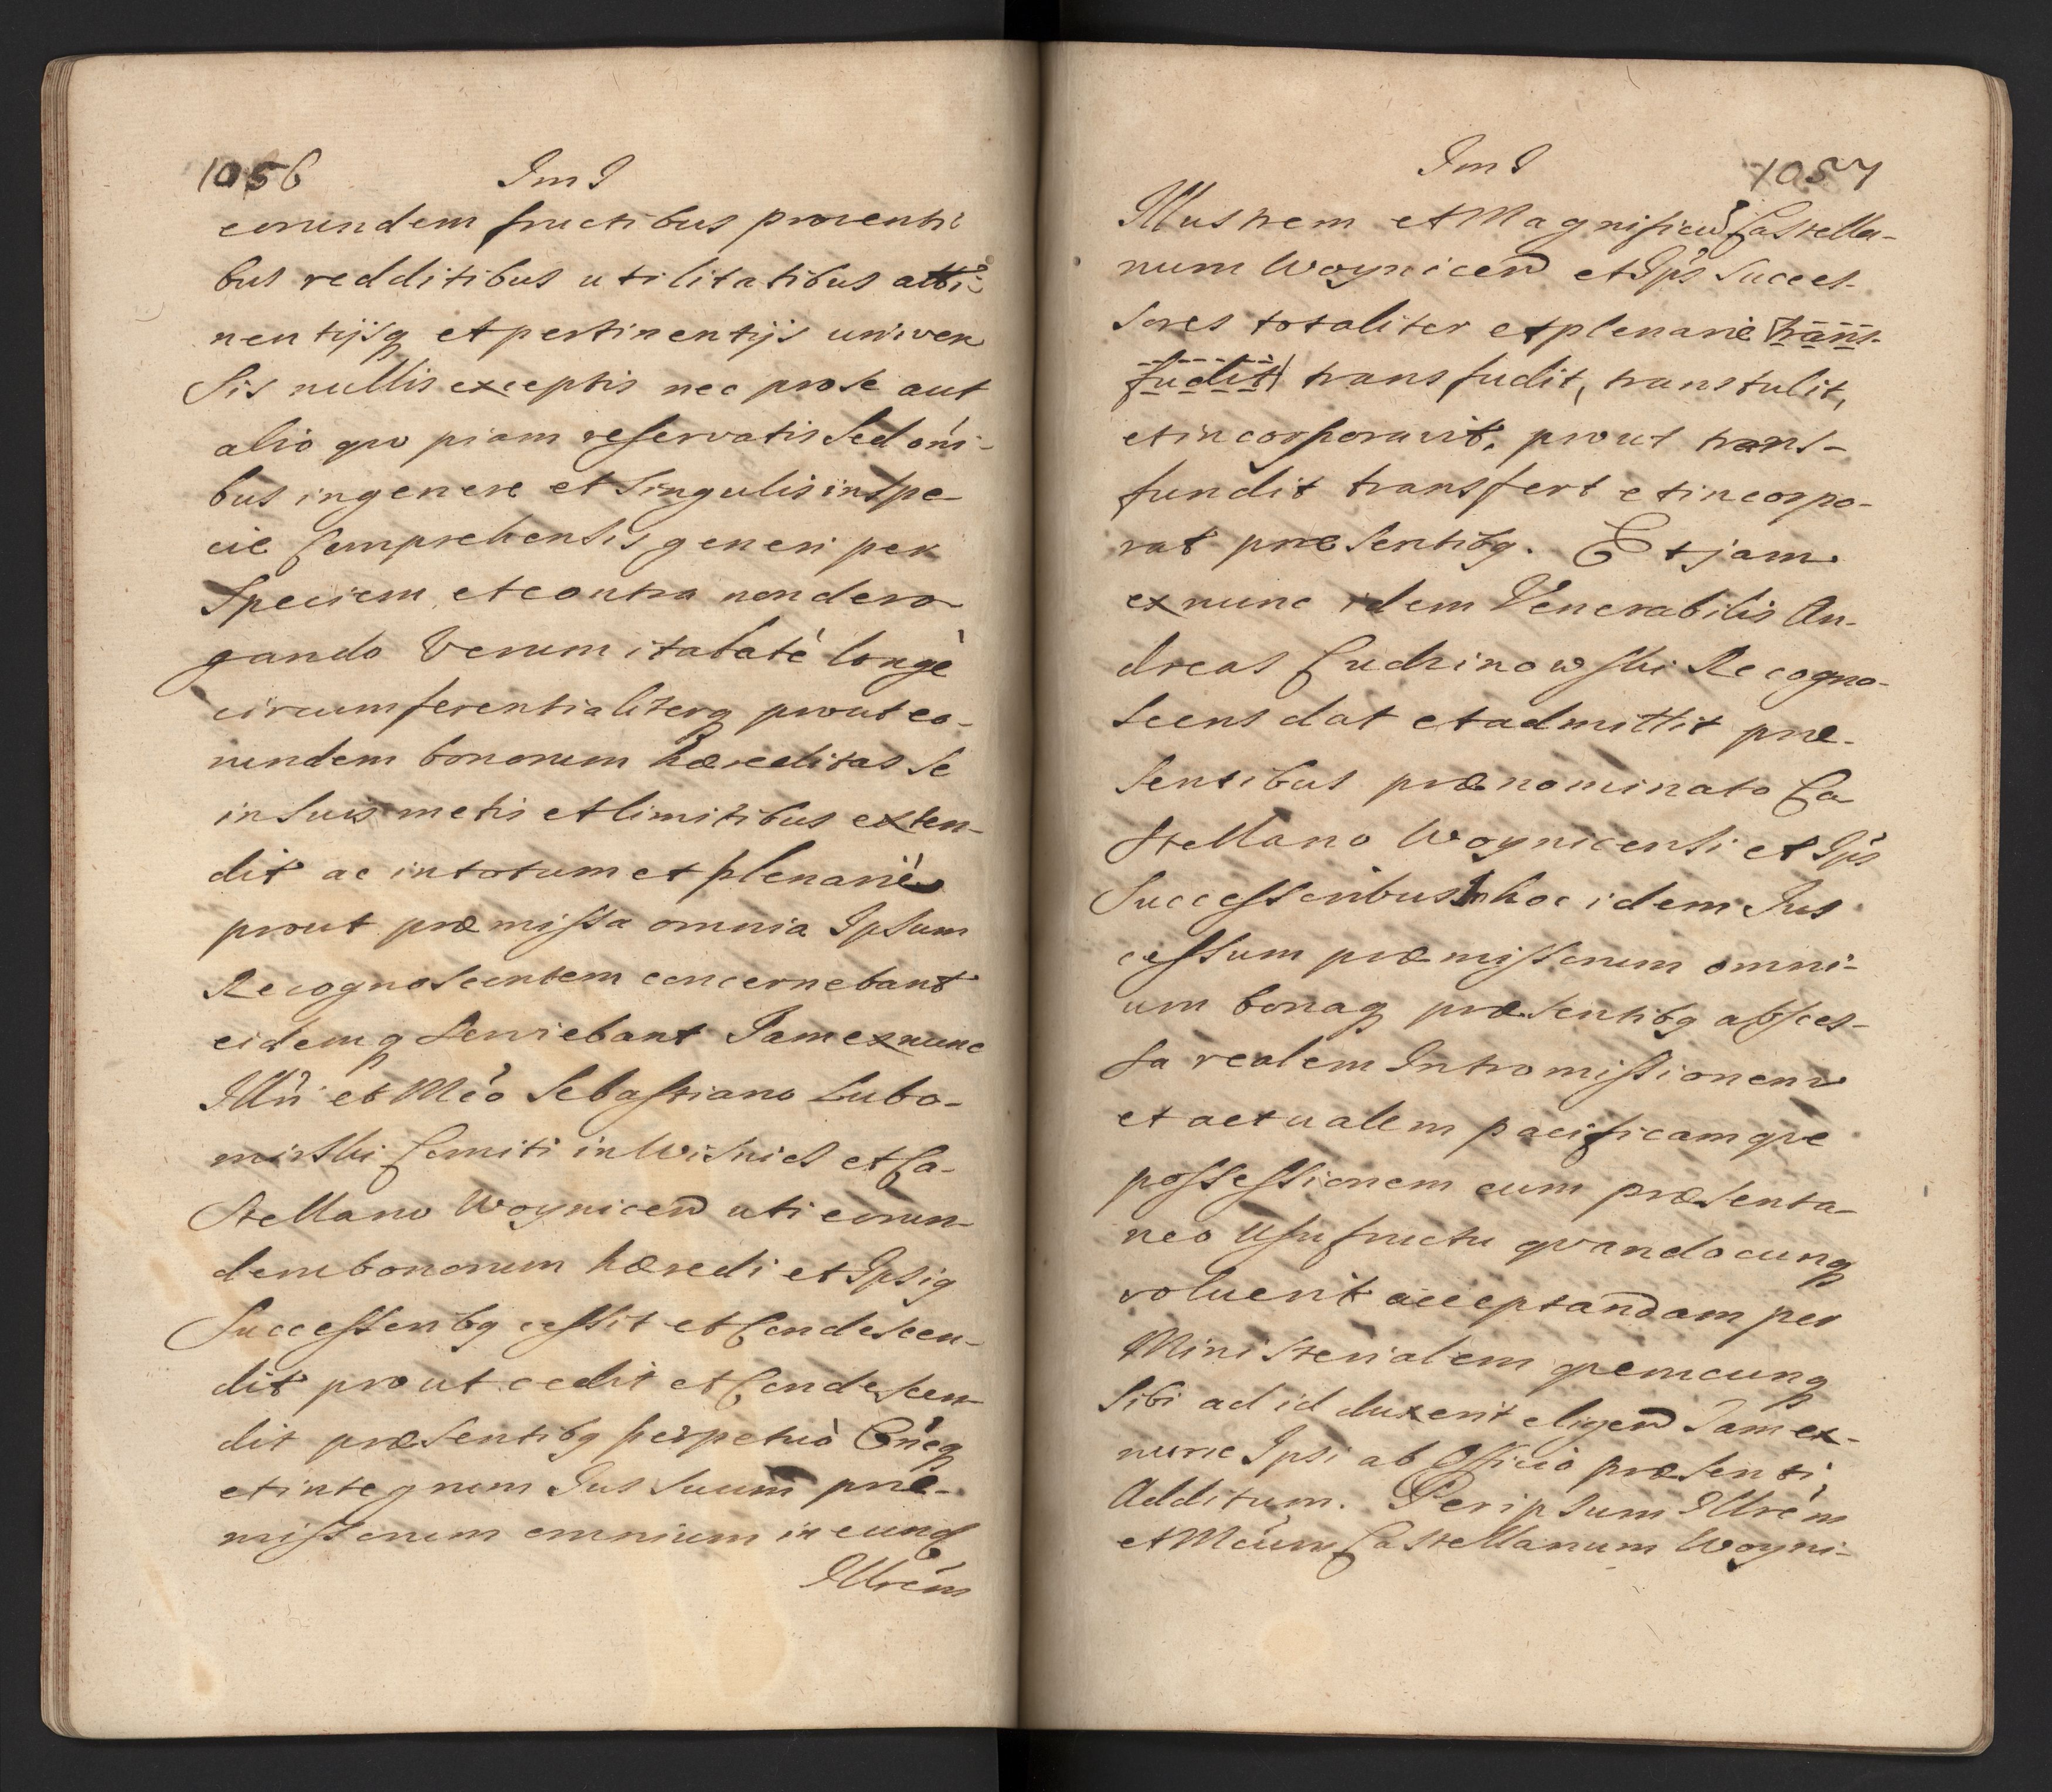 1056 Im I
eorundem fructibus proventi
bus redditibus utilitatibus atti-
nentijsq et pertinentijs univer
sis nullis exceptis nec pro se aut
alio quopiam reservatis sed oni-
bus in genere et singulis in spe-
cie comprehensis generi per
speciem et contra non dero-
gando verum ita latè longè
circumferentialiterq prout eo-
rundem bonorum hæreditas se
in suis metis et limitibus exten-
dit ac in totum et plenariè
prout præmissa omnia Ipsum
Recognoscentem concernebant
eidemq serviebant Jam ex nunc
Illri et Mco Sebastiano Lubo-
mirski Comiti in Wisnicz et Ca-
stellano Woynicen uti eorun-
dem bonorum hæredi et Ipsiq
Successoribq cessit et Condescen-
dit prout cedit et Condescen-
dit præsentibq perpetuò Oneq
et integrum Jus suum præ-
missorum omnium in eund
Illrem
Im I 1057
Illustrem et Magnificu Castella-
num Woynicen et Ips Succes-
sores totaliter et plenariè trans-
fudit transfudit, transtulit,
et incorporavit, prout trans-
fundit transfert et incorpo-
rat præsentibq. Et jam
ex nunc idem Venerabilis An-
dreas Cudzinowski Recogno-
scens dat et admittit præ-
sentibus prænominato Ca
stellano Woynicensi et Ips
Successoribus In hoc idem Jus
cessum præmissorum omni-
um bonaq præsentibq absces-
sa realem Intromissionem
et actualem pacificamque
possessionem cum præsenta-
neo usufructu quandocunq
voluerit acceptandam per
Ministerialem quemcunq
sibi ad id duxerit eligen Jam ex-
nunc Ipsi ab Officio præsenti
Additum. Per ipsum Illrem
et Mcum Castellanum Woyni-